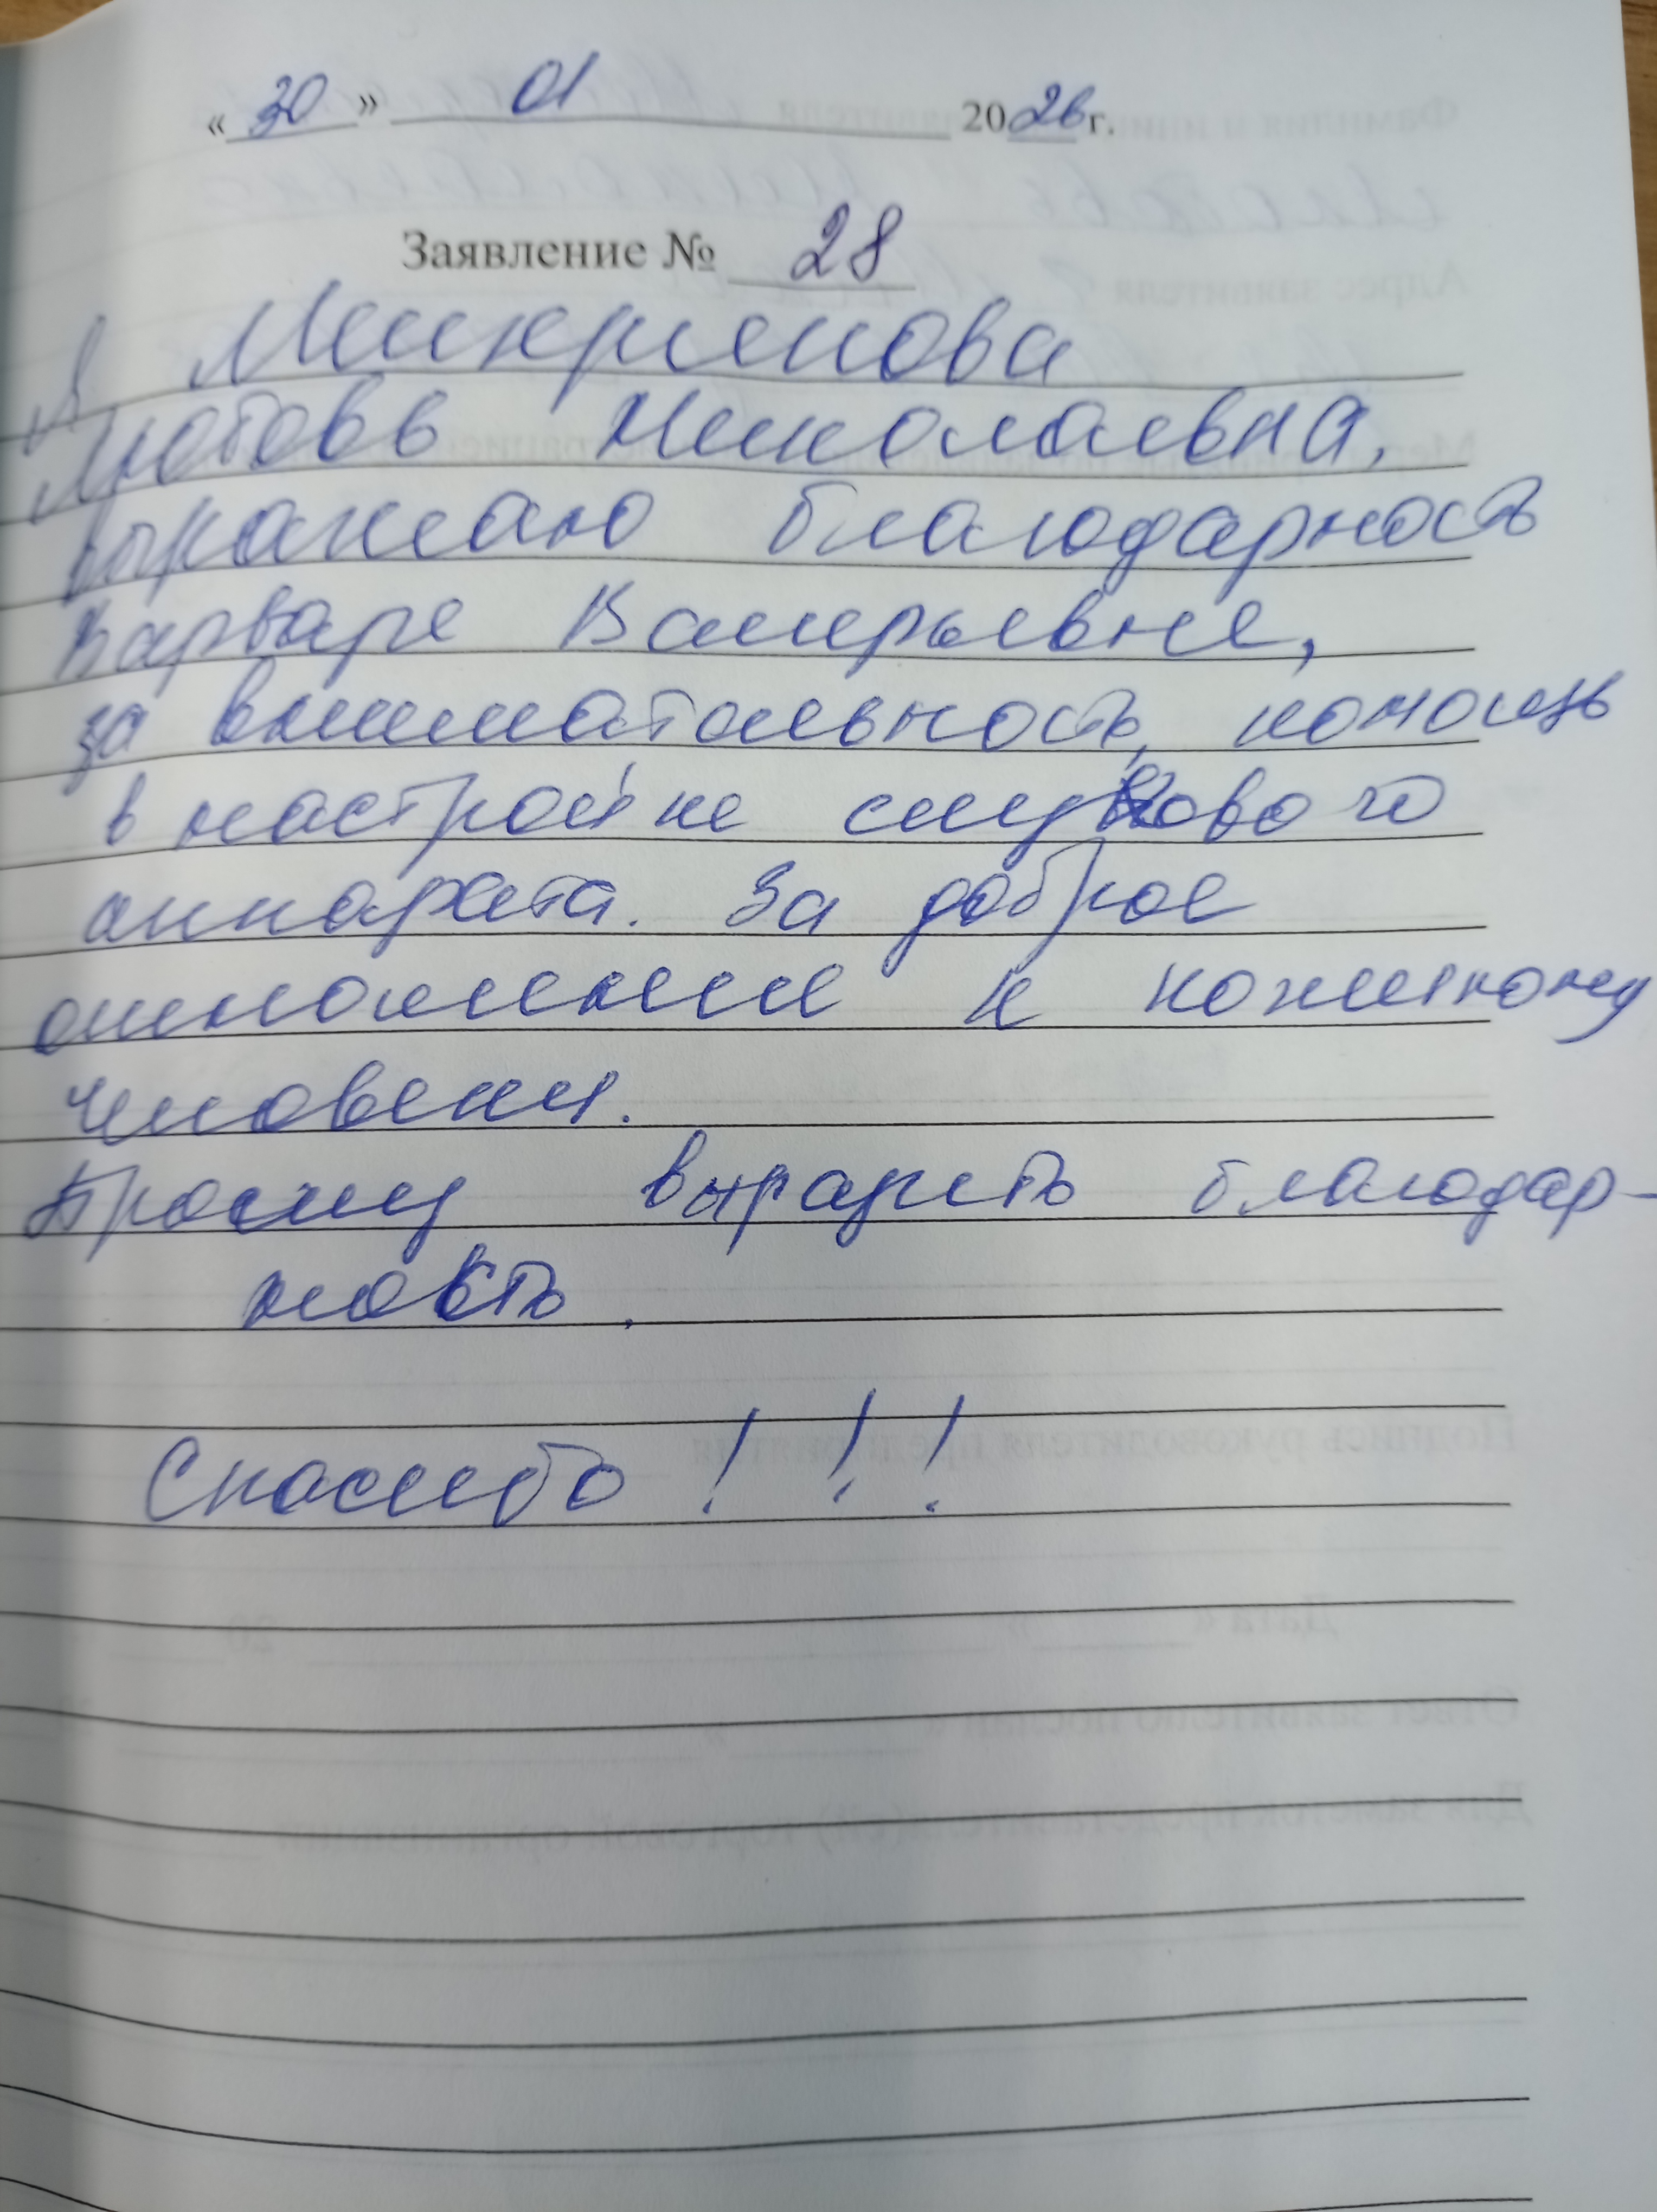 « 30 » 01 2026 г.
Заявление № 28
Я Минкринова
Любовь Николаевна,
выражаю благодарность
Варваре Валерьевне,
за внимательность, помощь
в настройке слухового
аппарата. За доброе
отношение к кожному
человеку.
Прошу выразить благодар-
ность.
Спасибо ! ! !